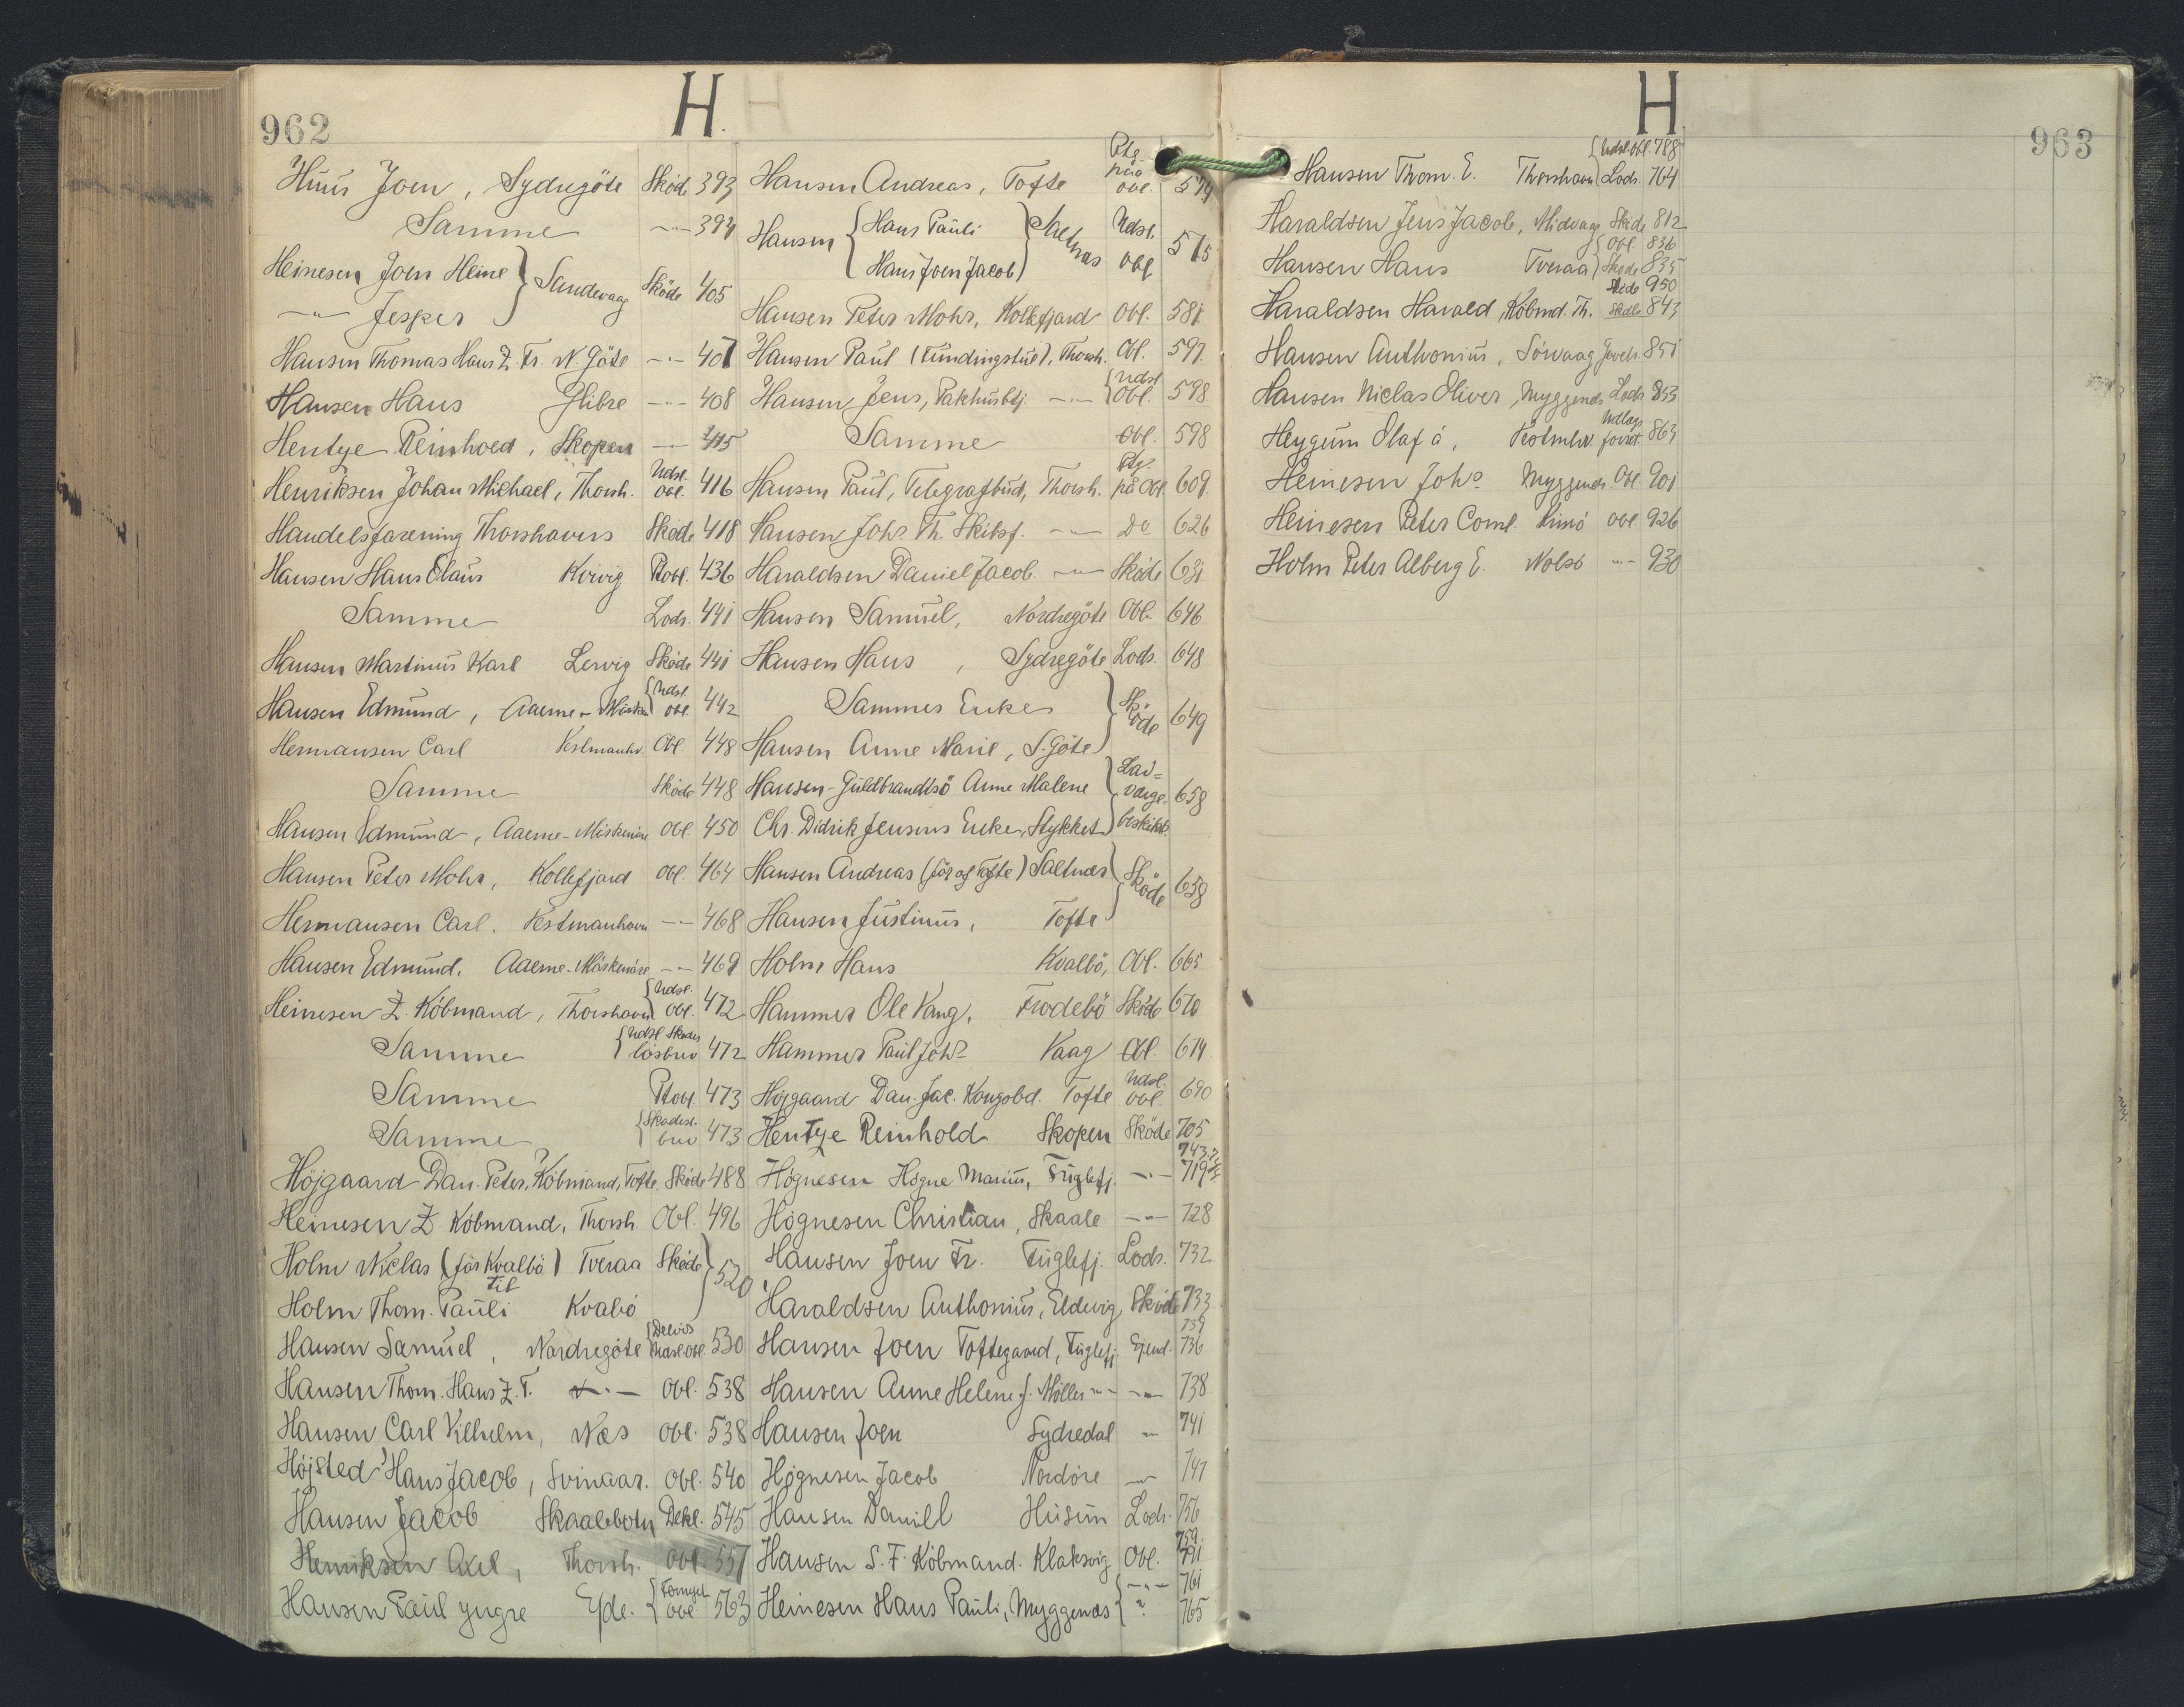 962
H.
Huus Joen, Sydregöte Sköd. 393
Samme —"— 394
Heinesen Joen Heine } Sandevaag Sköde 405
—"— Jesper
Hansen Thomas Hans Z. Fr. N. Göte —"— 407
Hansen Hans Glibre —"— 408
Hentze Reinhold, Skopen —"— 415
Henriksen Johan Michael, Thorsh. Udsl. obl. 416
Handelsforening Thorshavns Sköde 418
Hansen Hans Olaus Kvivig Ptobl. 436
Samme Lods. 441
Hansen Martinus Karl Lervig Sköde 441
Hansen Edmund, Aaerne-Misken { Udsl. obl. 442
Hermansen Carl Vestmanhv. Obl 448
Samme Sköde 448
Hansen Edmund, Aaerne-Miskenöre Obl. 450
Hansen Peter Mohr, Kollefjord Obl. 464
Hermansen Carl. Vestmanhavn —"— 468
Hansen Edmund. Aaerne-Möskenöre —"— 469
Heinesen Z. Köbmand, Thorshavn { Udsl. Obl. 472
Samme { Udsl Skades lösbrev 472
Samme Ptobl. 473
Samme { Skadesl. brev 473
Höjgaard Dan. Peter, Köbmand, Tofte. Sköde 488
Heinesen Z Köbmand, Thorsh Obl. 496
Holm Niclas (för Kvalbö) Tveraa Sköde } 520
til
Holm Thom. Pauli Kvalbö
Hansen Samuel, Nordregöte { Delvis Udsl. Obl. 530
Hansen Thom. Hans Z. F. —"— Obl. 538
Hansen Carl Vilhelm, Næs Obl. 538
Höjsted Hans Jacob, Svinaar. Obl. 540
Hansen Jacob Skaalebotn Dekl. 545
Henriksen Axel, Thorsh. Obl. 557
Hansen Paul yngre Ejde. { Fornyet obl 563
Hansen Andreas, Tofte Ptg. paa obl. 574
Hansen { Hans Pauli } Saltnæs Udsl. obl 575
Hans Joen Jacob
Hansen Peter Mohr, Kollefjord Obl. 581
Hansen Paul (Kundingstue), Thorsh. Obl. 597
Hansen Jens, Pakhusbtj. —"— { Udsl Obl. 598
Samme Obl. 598
Hansen Paul, Telegrafbud, Thorsh. Ptg. på Obl. 609
Hansen Johs. Th. Skibsf. —"— Do 626
Haraldsen Daniel Jacob. —"— Sköde 631
Hansen Samuel, Nordregöte Obl. 646
Hansen Hans, Sydregöte Lods. 648
Sammes Enke } Sköde 649
Hansen Anne Marie, S. Göte
Hansen-Guldbrandsö Anne Malene } Lav=værge-beskikk. 658
Chr. Didrik Jensens Enke, Stykket
Hansen Andreas (för af Tofte) Saltnæs } Sköde 658
Hansen Justinus, Tofte
Holm Hans Kvalbö, Obl. 665
Hammer Ole Vang. Frodebö Sköde 670
Hammer Paul Johs. Vaag Obl. 674
Højgaard Dan. Jac. Kongsbd. Tofte Udsl. obl. 690
Hentze Reinhold Skopen Sköde 705
743.
Högnesen Högne Marius, Fuglefj. —"— 719
Högnesen Christian, Skaale —"— 728
Hansen Joen Fr. Fuglefj. Lods. 732
Haraldsen Anthonius, Eldevig Sköde 733
739
Hansen Joen Toftegaard, Fuglefj. Ejend. 736
Hansen Anne Helene f. Möller —"— —"— 738
Hansen Joen Sydredal " 741
Højgnesen Jacob Nordöre —"— 747
Hansen Daniel Husum Lods. 756
759.
Hansen S. F. Köbmand. Klaksvig Obl. 791
Heinesen Hans Pauli, Myggenæs { —"— 761
" 765
H.
963
Hansen Thom. E. Thorshavn { Udsl. Obl. 788
Lods. 764
Haraldsen Jens Jacob, Midvaag Sköde 812
Hansen Hans Tveraa { Obl. 836
Sköde 835
Sköde 950
Haraldsen Harald, Köbmd. Th. Sködte 843
Hansen Anthonius, Sörvaag 851
Hansen Niclas Oliver, Myggenæs Lods 853
Heygum Olaf á, Vestmhv. Udlægs forret. 863
Heinesen Johs. Myggenæs. Obl. 901
Heinesen Peter Corn. Himö obl. 926
Holm Peter Alberg E. Nolsö —"— 930